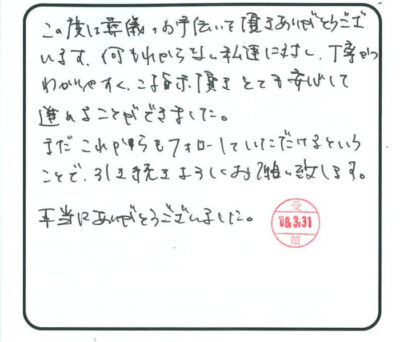 この度は葬儀のお手伝いして頂きありがとうござ
います。何もわからない私達に対し、丁寧かつ
わかりやすく、ご指示頂き とても安心して
進めることができました。
まだこれからもフォローしていただけるという
ことで、引き続きよろしくお願い致します。
本当にありがとうございました。
受
08.3.31
領